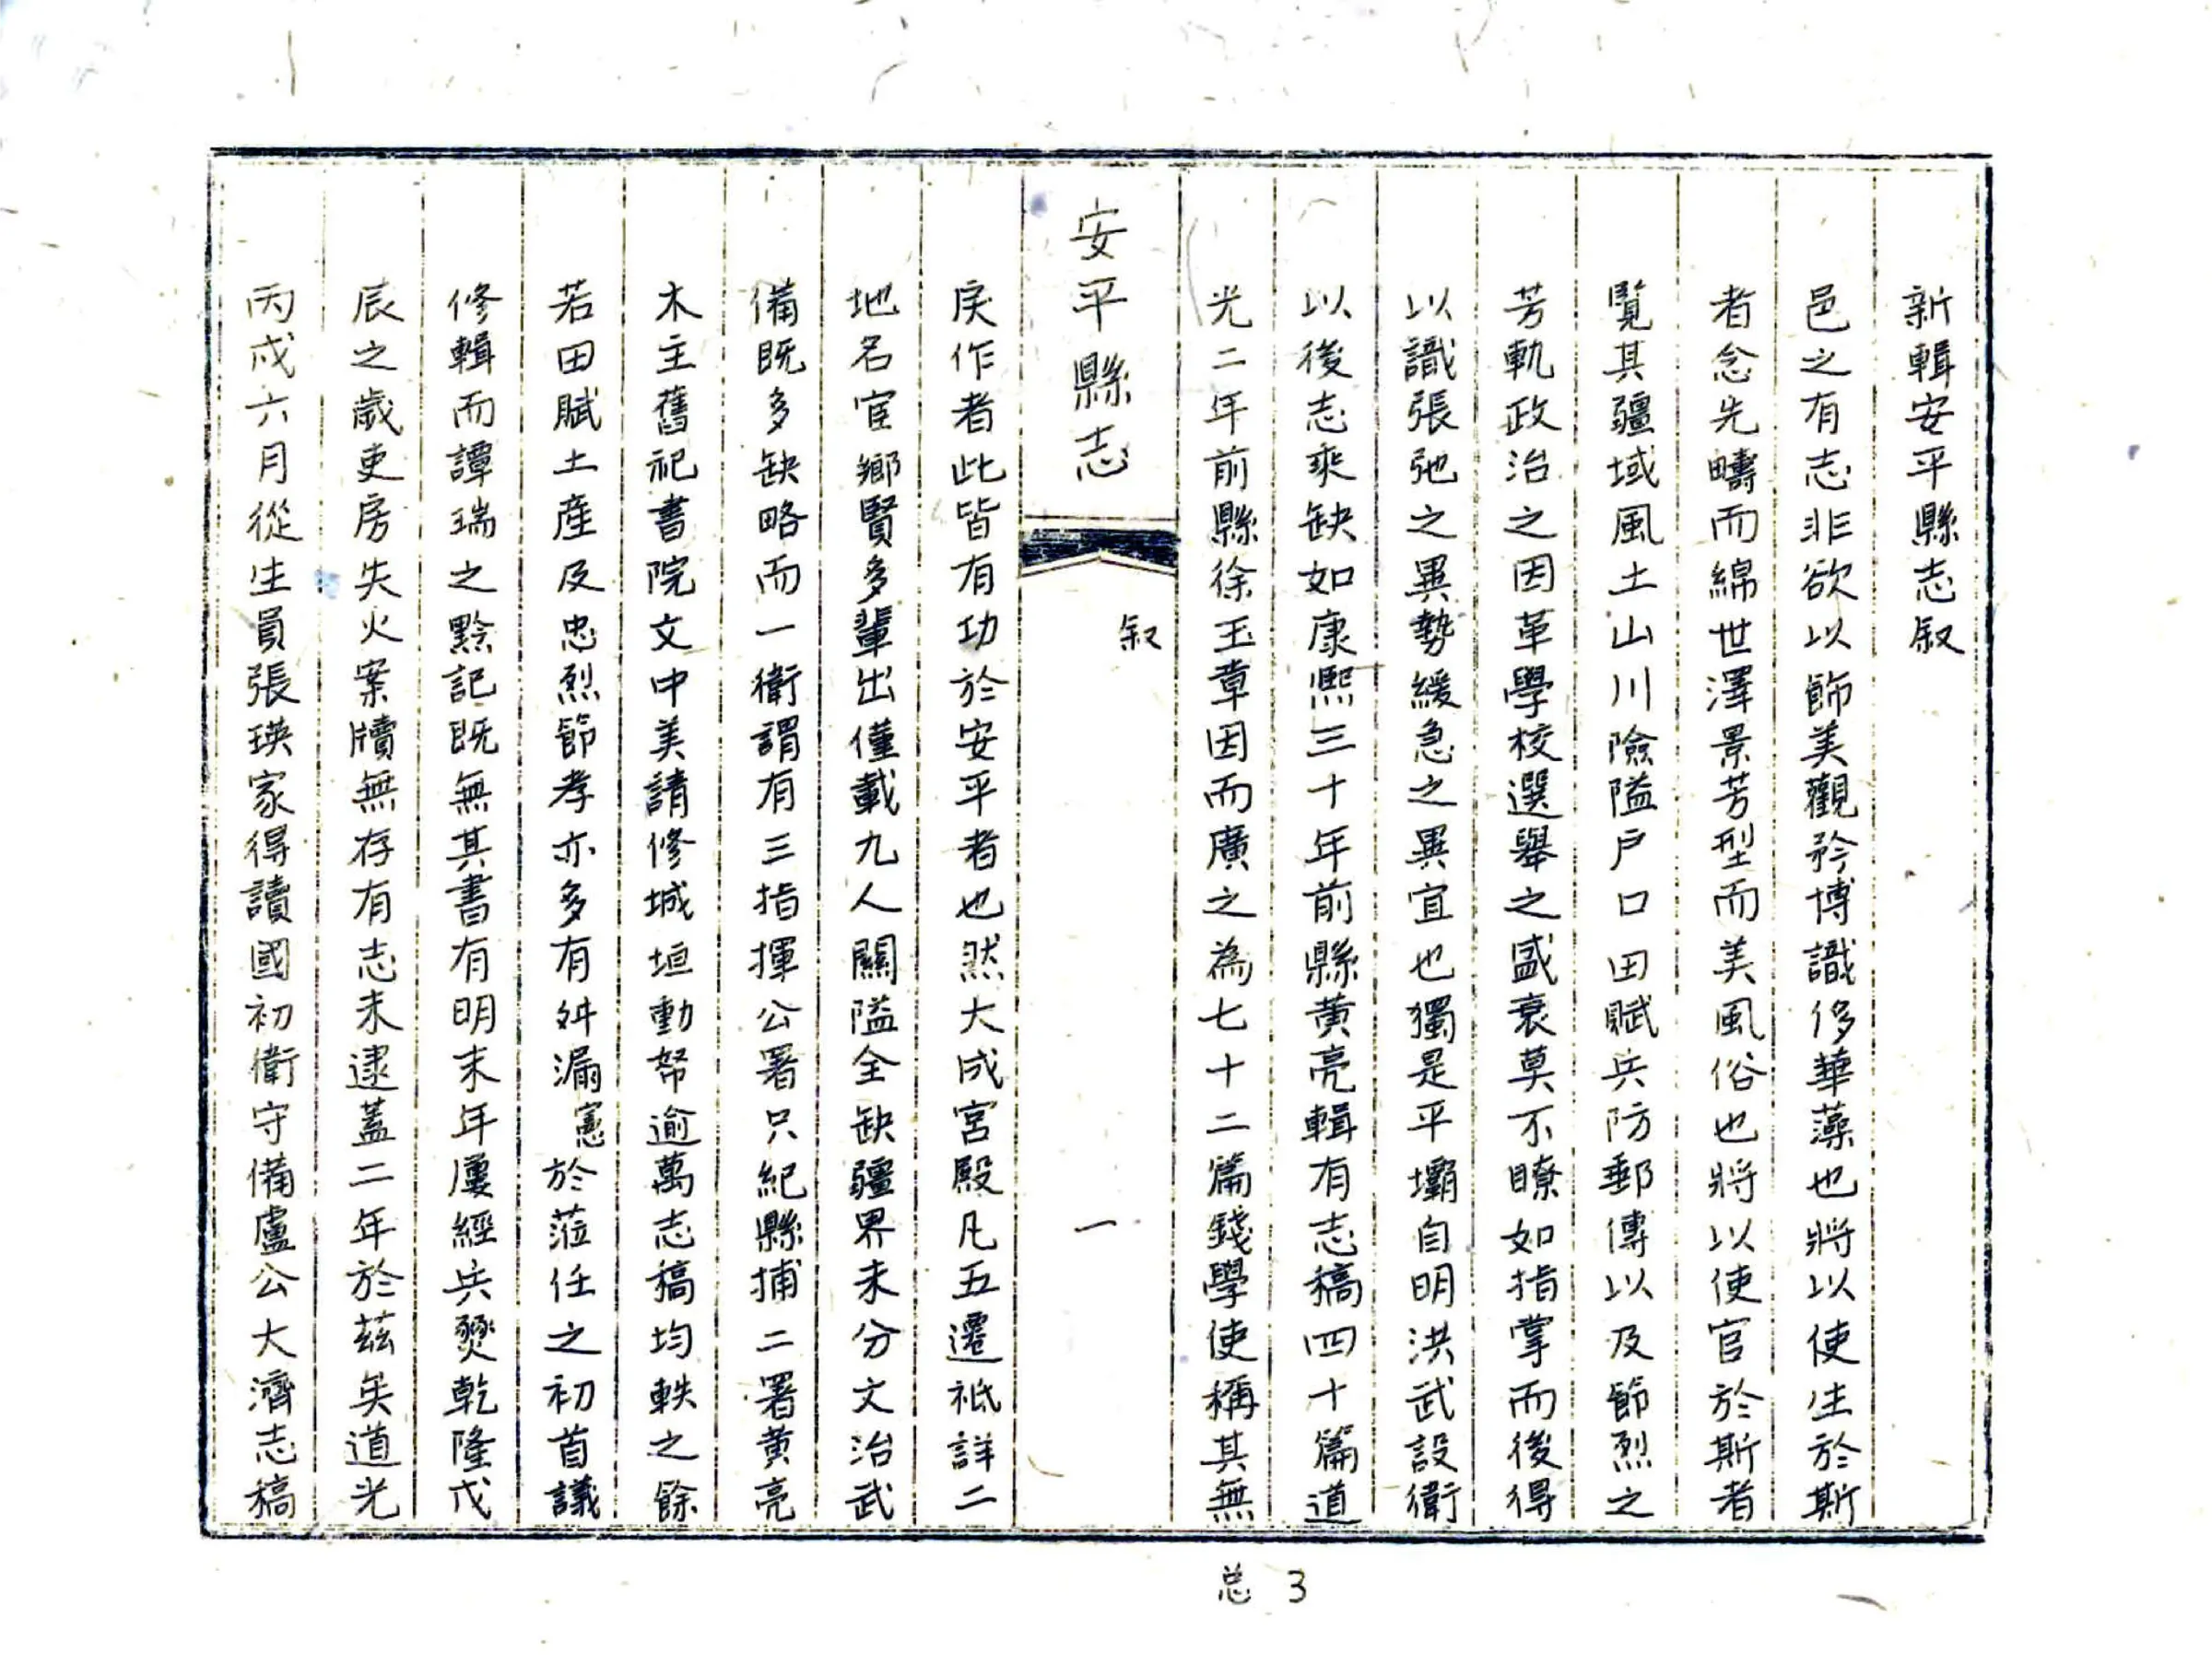 新輯安平縣志叙
邑之有志非欲以飾美觀矜博識侈華藻也將以使生於斯
者念先疇而綿世澤景芳型而美風俗也將以使官於斯者
覧其疆域風土山川險隘戶口田賦兵防郵傳以及節烈之
芳軌政治之因革學校選舉之盛衰莫不瞭如指掌而後得
以識張弛之異勢緩急之異宜也獨是平壩自明洪武設衛
以後志乘缺如康熙三十年前縣黃亮輯有志稿四十篇道
光二年前縣徐玉章因而廣之為七十二篇錢學使稱其無
安平縣志
叙
一
戾作者此皆有功於安平者也然大成宮殿凡五遷祗詳二
地名宦鄉賢多輩出僅載九人關隘全缺疆界未分文治武
備既多缺略而一衛謂有三指揮公署只紀縣捕二署黃亮
木主舊祀書院文中美請修城垣動帑逾萬志稿均軼之餘
若田賦土產及忠烈節孝亦多有舛漏憲於蒞任之初首議
修輯而譚瑞之黔記既無其書有明末年屢經兵燹乾隆戊
辰之歲吏房失火案牘無存有志未逮蓋二年於茲矣道光
丙戌六月從生員張瑛家得讀國初衛守備盧公大濟志稿
总 3